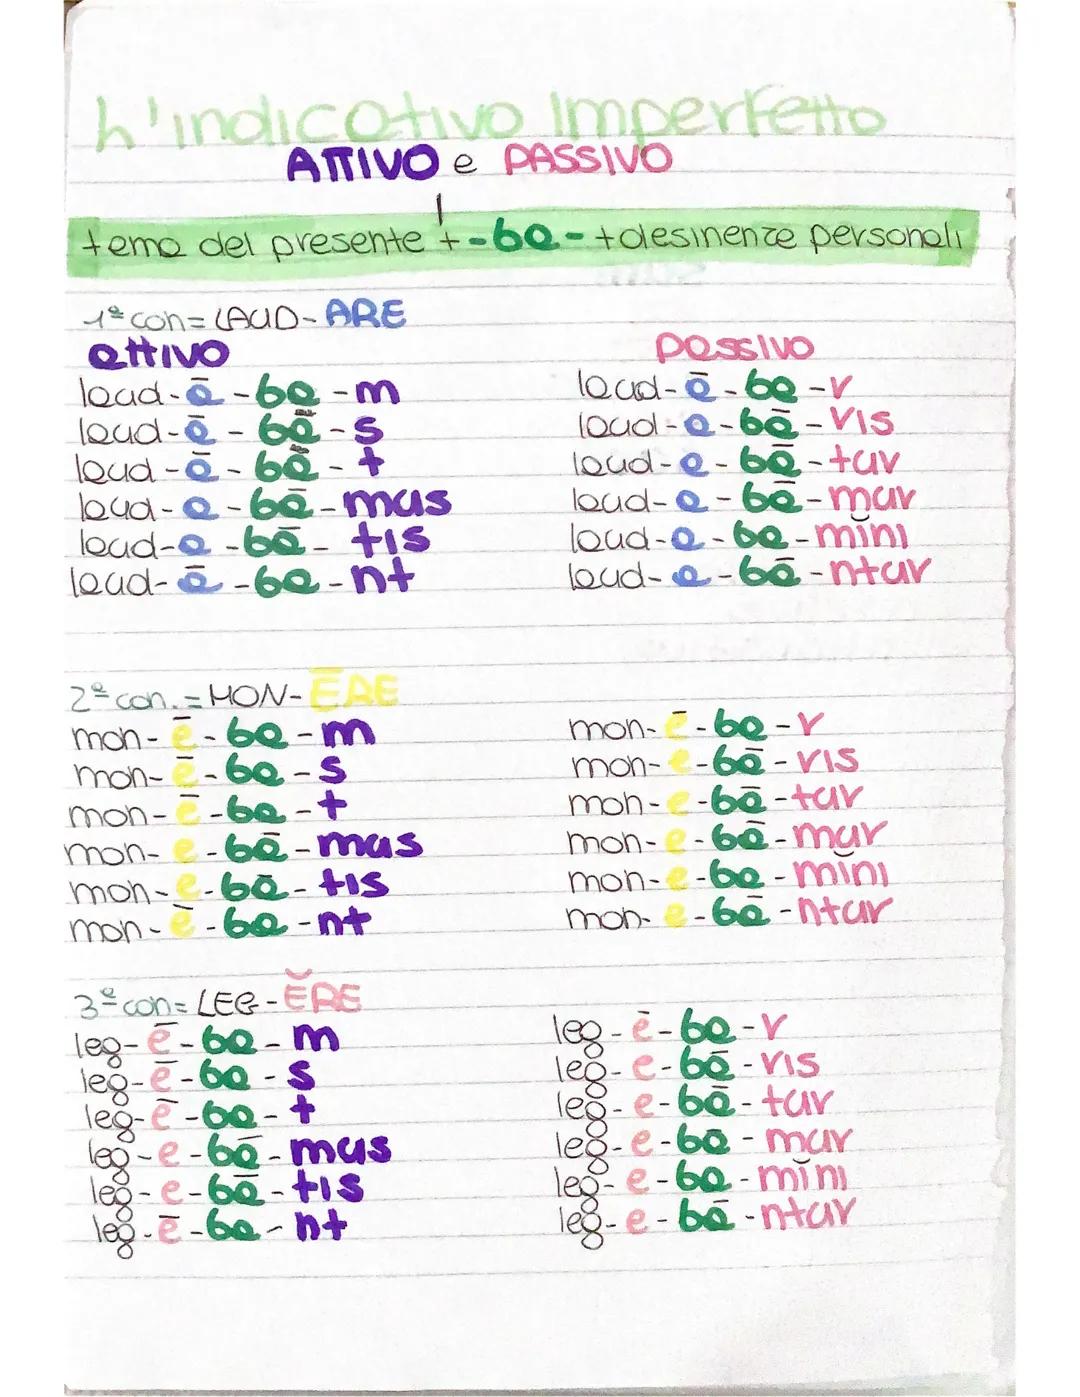 L'indicativo Imperfetto
ATTIVO e PASSIVO
tema del presente + -ba- + desinenze personali
1ª con = LAUD-ARE
attivo
laud-ā-ba-m
laud-ā-bā-s
laud-ā-bā-t
laud-a-bā-mus
laud-a-bā-tis
laud-ā-ba-nt
passivo
laud-ā-ba-r
laud-a-bā-ris
laud-a-bā-tur
laud-a-bā-mur
laud-a-ba-mĭni
laud-a-bā-ntur
2ª con. = MON-ĒRE
mon-ē-ba-m
mon-ē-ba-s
mon-ē-ba-t
mon-e-bā-mus
mon-e-bā-tis
mon-ē-ba-nt
mon-ē-ba-r
mon-e-bā-ris
mon-e-bā-tur
mon-e-bā-mur
mon-e-ba-mĭni
mon-e-bā-ntur
3ª con = LEG-ĔRE
leg-ē-ba-m
leg-ē-ba-s
leg-ē-ba-t
leg-e-bā-mus
leg-e-bā-tis
leg-ē-ba-nt
leg-ē-ba-r
leg-e-bā-ris
leg-e-bā-tur
leg-e-bā-mur
leg-e-ba-mĭni
leg-e-bā-ntur